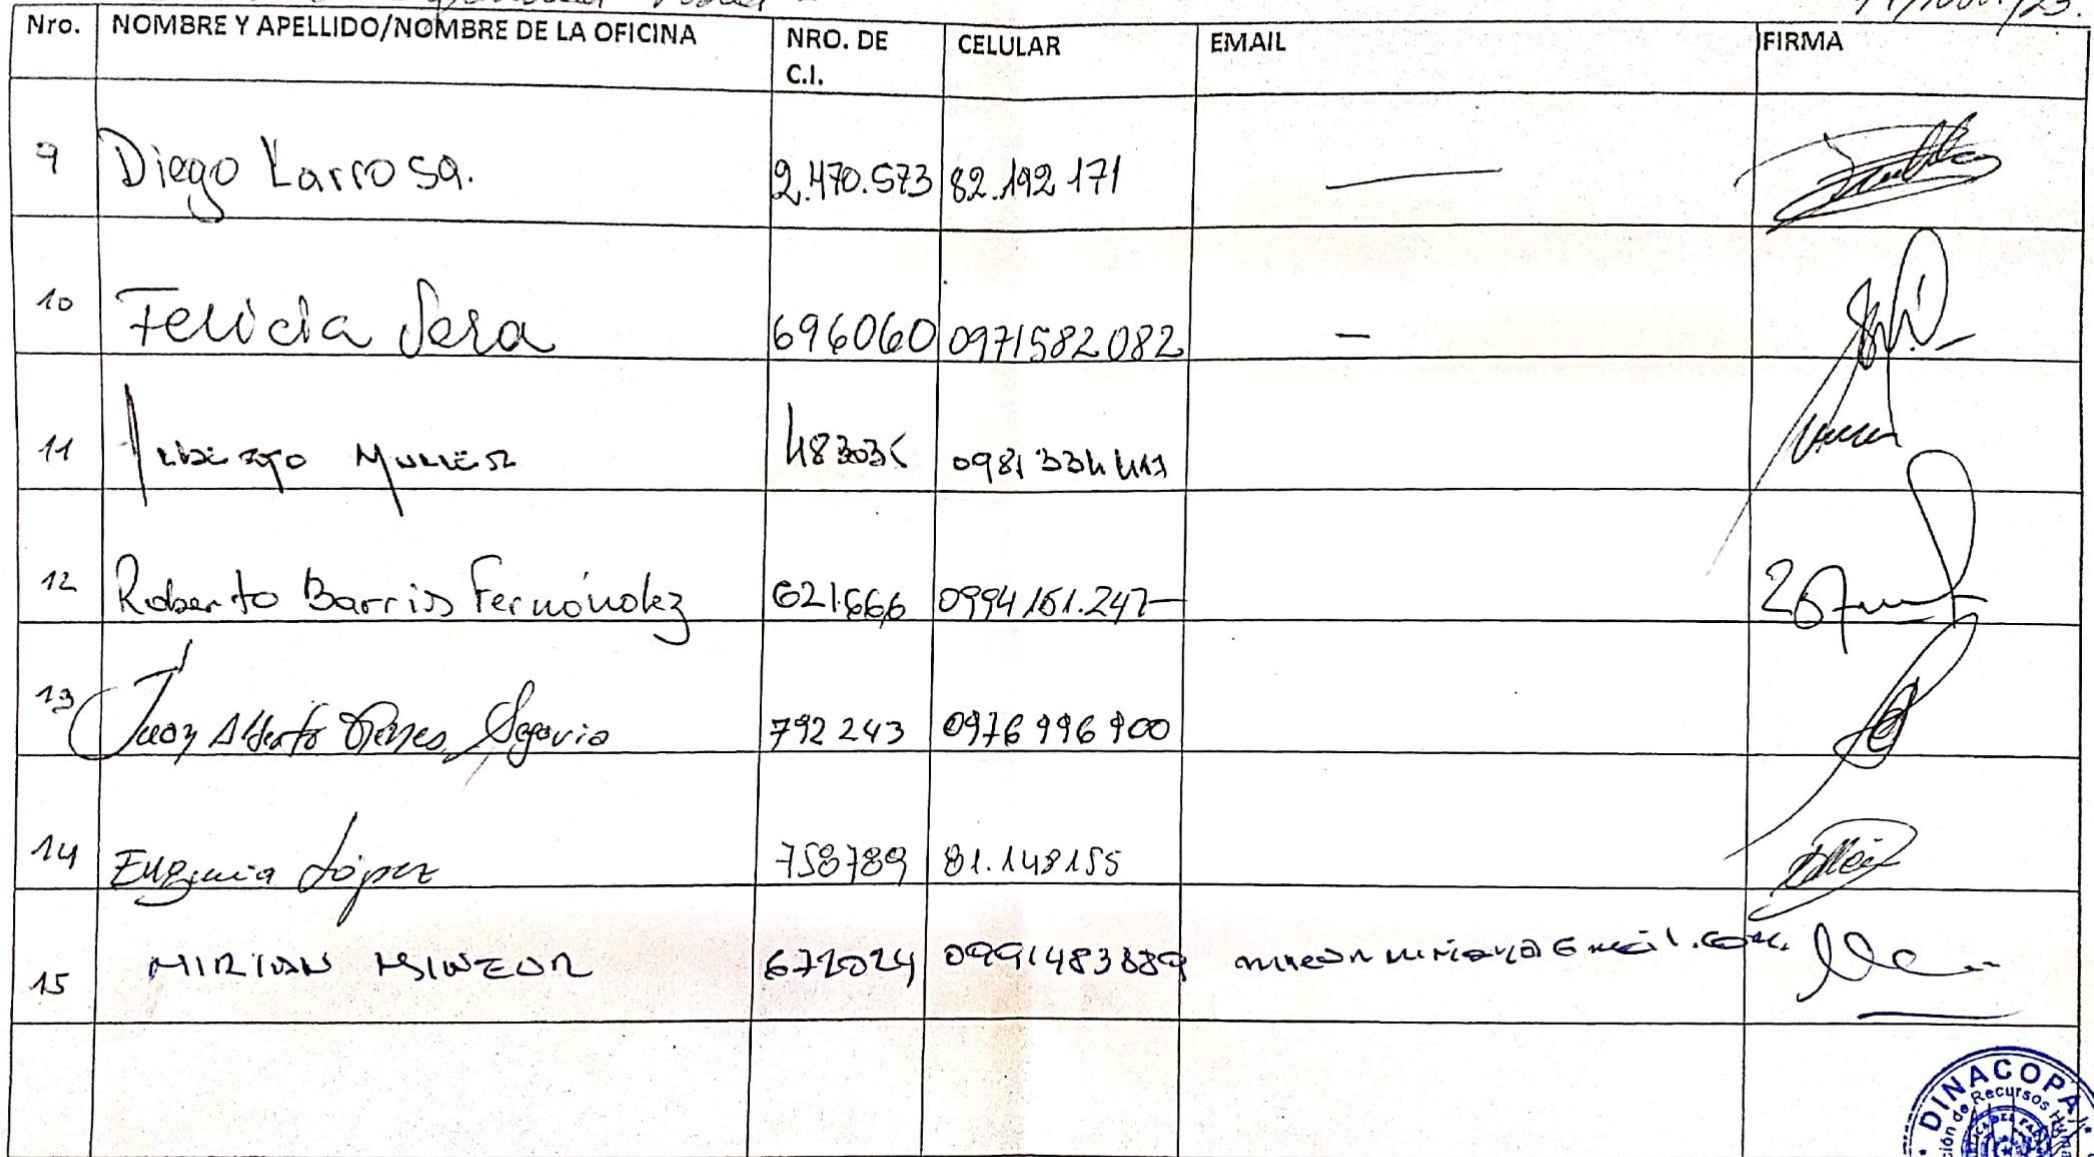 Nro. NOMBRE Y APELLIDO/NOMBRE DE LA OFICINA NRO. DE C.I. CELULAR EMAIL FIRMA
9 Diego Larrosa. 2.470.573 82.192 171 —
10 Felicia Sosa 696060 0971582082 —
11 Alberto Muller 48303
12 Roberto Barrios Fernández 621.666 0994 161.247-
13 Juan Alberto Segovia 792 243 0976 996 900
14 Eugenia López 758789 81.148155
15 MIRIAN 0991483889
DINACOPA
Recursos